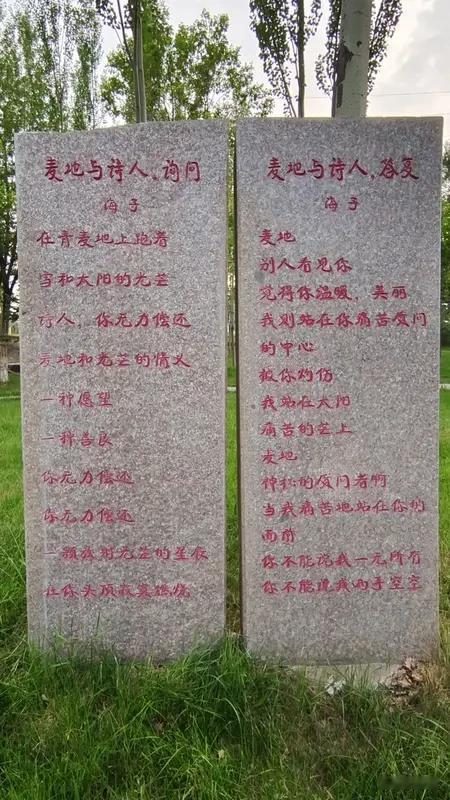 麦地与诗人·询问
海子
在青麦地上跑着
雪和太阳的光芒
诗人，你无力偿还
麦地和光芒的情义
一种愿望
一种善良
你无力偿还
你无力偿还
一颗放射光芒的星辰
在你头顶寂寞燃烧
麦地与诗人·答复
海子
麦地
别人看见你
觉得你温暖，美丽
我则站在你痛苦质问
的中心
被你灼伤
我站在太阳
痛苦的芒上
麦地
神秘的质问者啊
当我痛苦地站在你的
面前
你不能说我一无所有
你不能说我两手空空